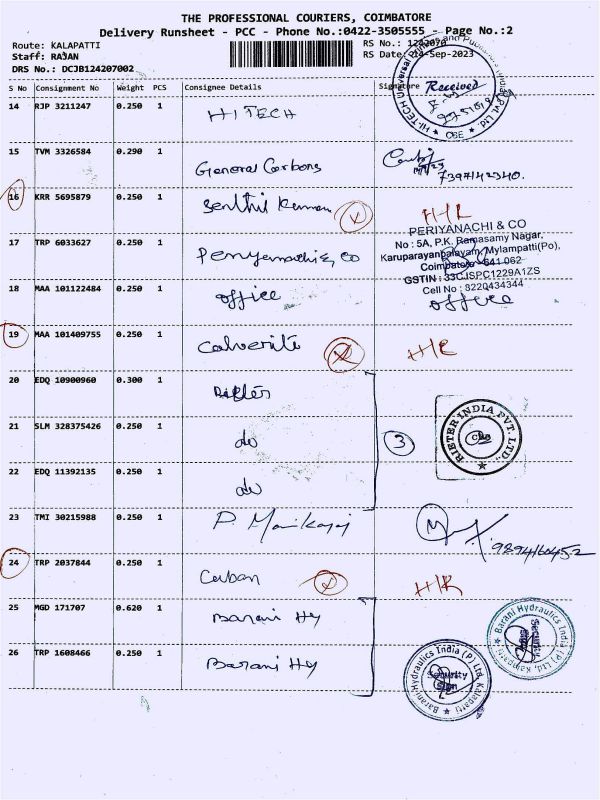 THE PROFESSIONAL COURIERS, COIMBATORE
Delivery Runsheet - PCC - Phone No.:0422-3505555 - Page No.:2
Route: KALAPATTI
Staff: RAJAN
DRS No.: DCJB124207002
RS No.: 1242070
RS Date: 14-Sep-2023
S No Consignment No Weight PCS Consignee Details Signature
Received
CBE
14 RJP 3211247 0.250 1 HITECH
15 TVM 3326584 0.290 1 General Carbons
7397142340.
16 KRR 5695879 0.250 1 Senthil Kumar
PERIYANACHI & CO
No : 5A, P.K. Ramasamy Nagar,
Karuparayanpalayam, Mylampatti(Po),
Coimbatore - 641 062
GSTIN : 33CJSPC1229A1ZS
Cell No : 8220434344
17 TRP 6033627 0.250 1 Periyanachi & Co
18 MAA 101122484 0.250 1 office office
19 MAA 101409755 0.250 1
20 EDQ 10900960 0.300 1 Rieter
21 SLM 328375426 0.250 1 do
3
RIETER INDIA PVT. LTD.,
CBE
22 EDQ 11392135 0.250 1 do
23 TMI 30215988 0.250 1 P. Manikaraj
9894160452
24 TRP 2037844 0.250 1
25 MGD 171707 0.620 1 Barani Hy
Barani Hydraulics India (P) Ltd, Kalapatti
26 TRP 1608466 0.250 1 Barani Hy
Barani Hydraulics India (P) Ltd, Kalapatti
Security
Sign